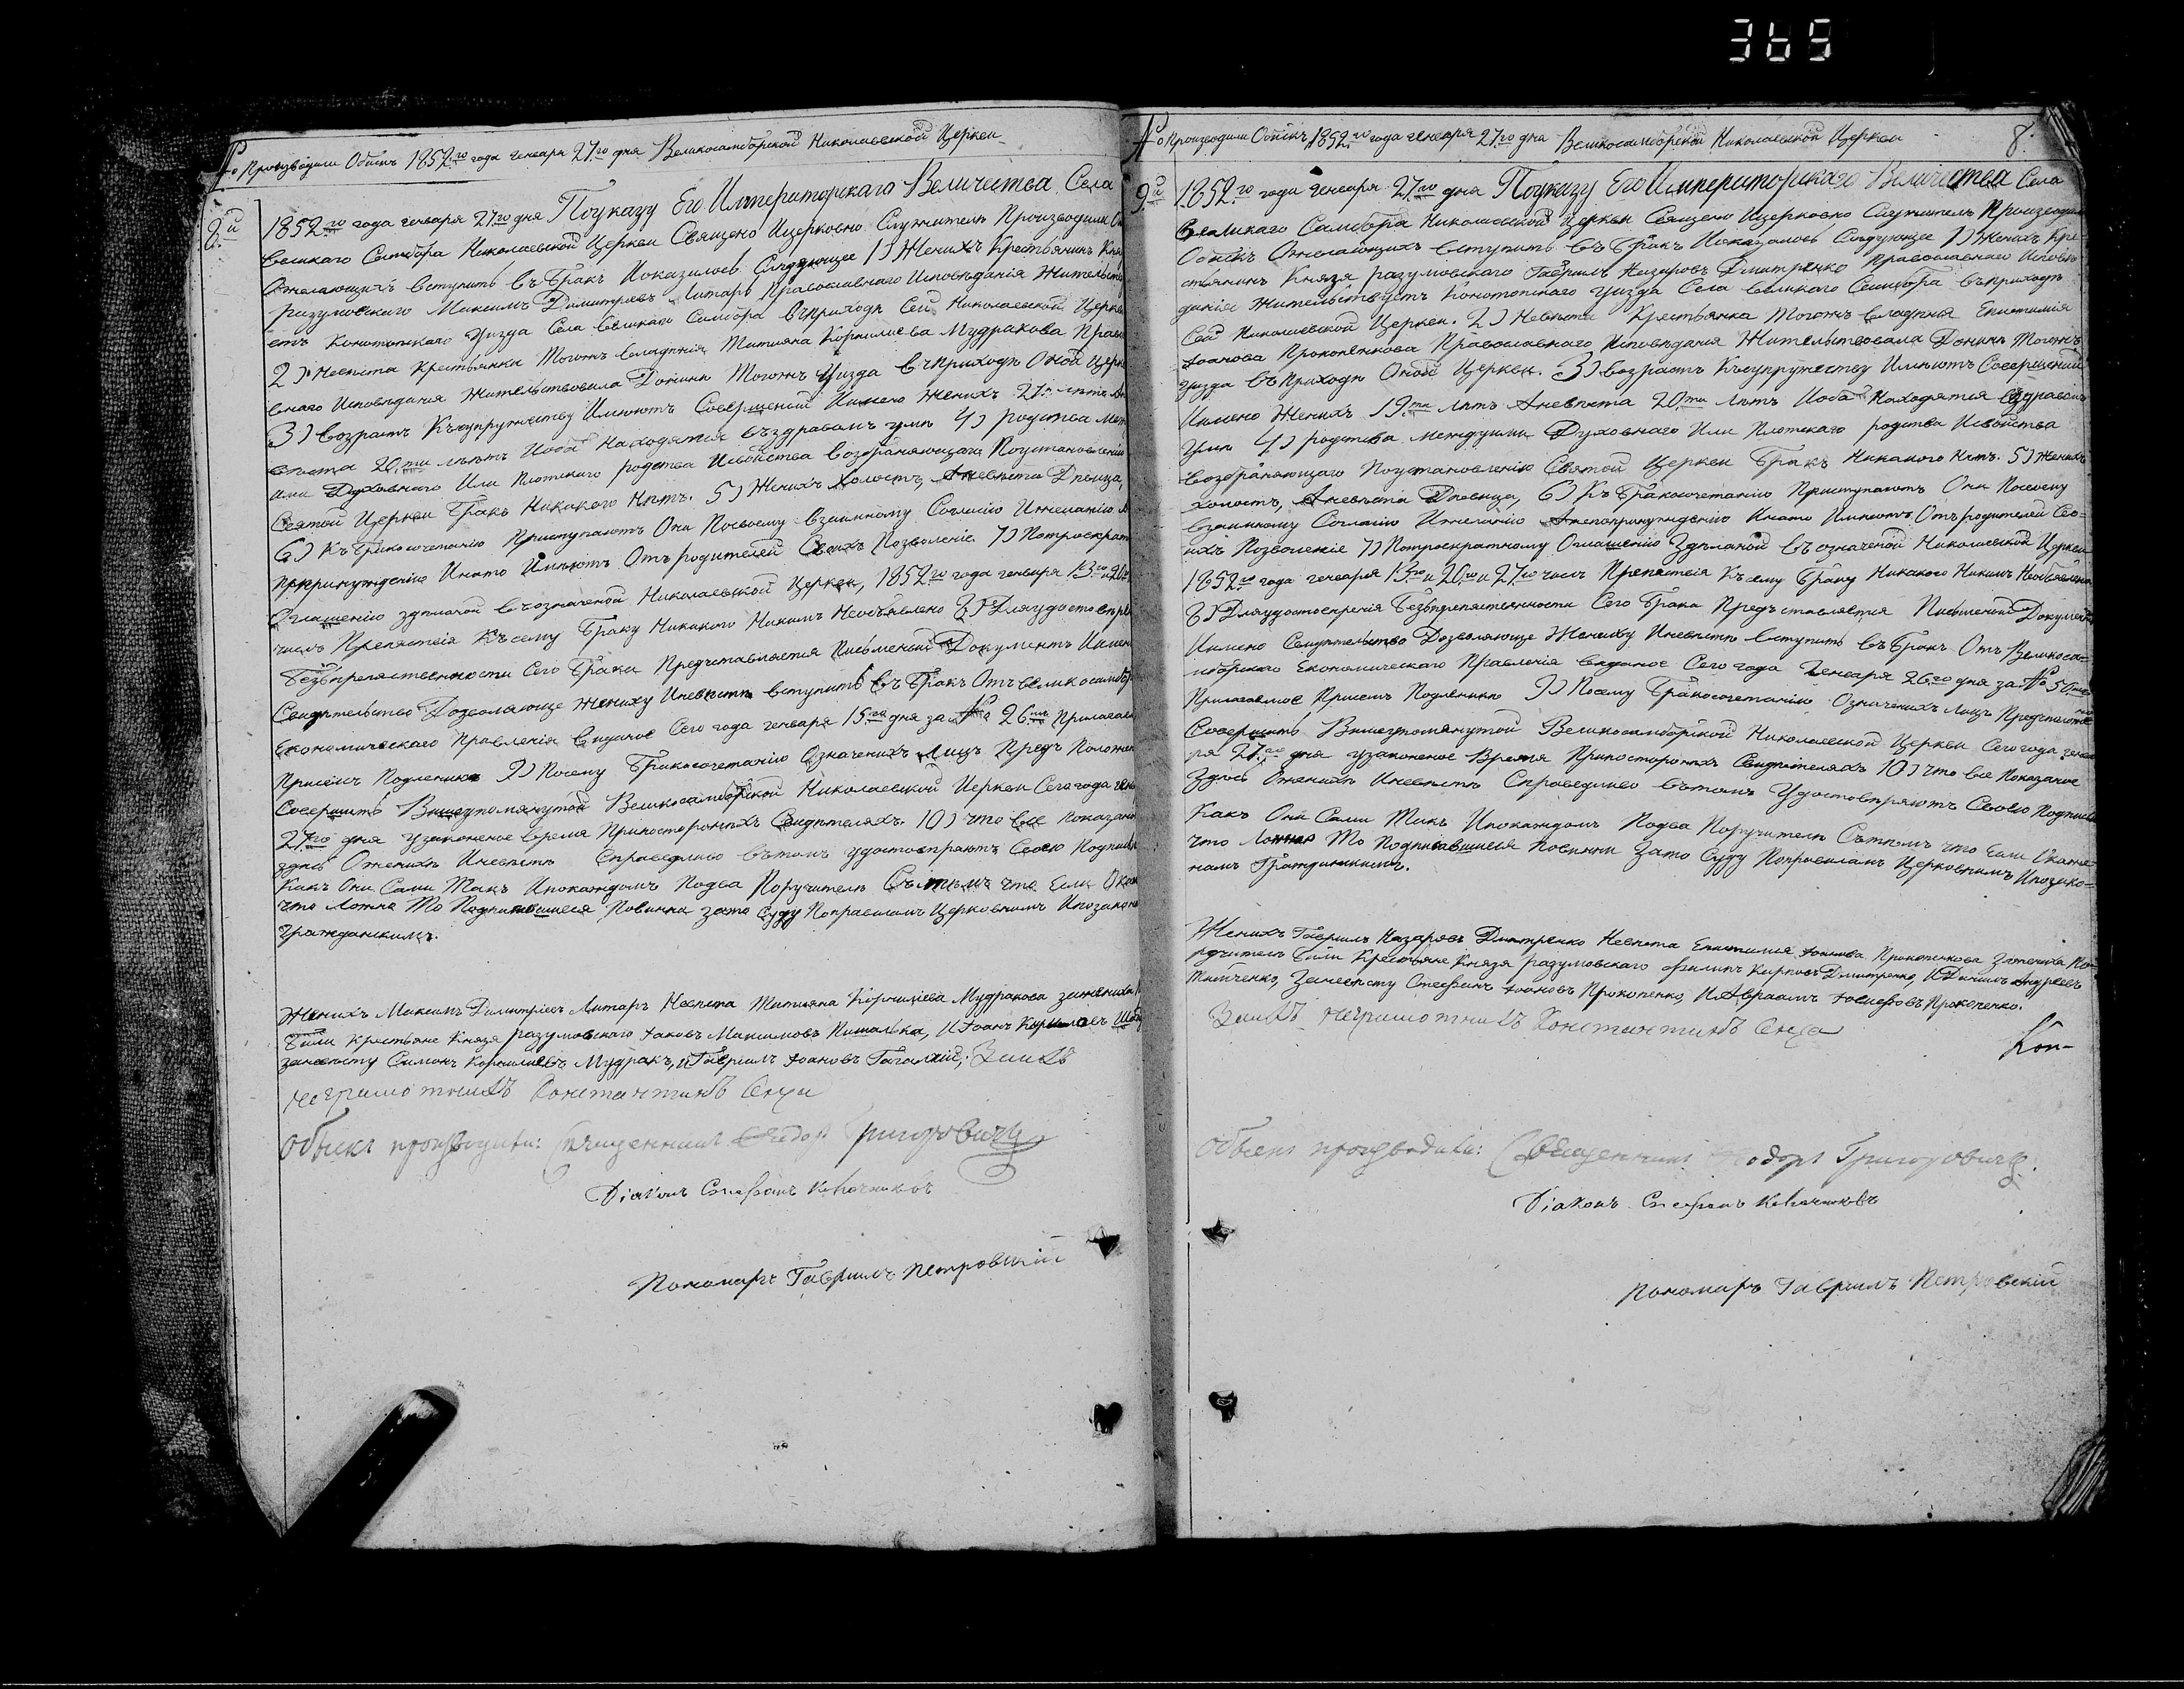 365
№ Производили Обыскъ 1852го года генваря 27го дня Великосамборской Николаевской Церкви
8й
1852го года генваря 27го дня Поуказу Его Императорскаго Величества Села
великаго Самбора Николаевской Церкви Священо Ицерковно Служители Производили
Ожелающихъ вступить въ Бракъ Иоказалось Следующее 1) Женихъ Крестьянинъ Кня
разумовскаго Максимъ Димитріевъ Литаръ Православнаго Исповѣданія Жительств
етъ Конотопскаго Уизда Села великаго Самбора въприходѣ Сей Николаевской Церкви
2) Невѣста Крестьянка Тогожъ владѣнія Татіяна Корнилиева Мудракова Право
внаго Исповѣданія Жительствовала Донинѣ Тогожъ Уизда въПриходѣ Оной Церкви
3) возрастъ Късупружеству Имѣютъ Совершеній Имено Женихъ 27. лѣтъ Ане
вѣста 20.ти лѣтъ Иоба Находятся въздравомъ умѣ 4) родства меж
ими Духовнаго Или Плотскаго родства Исвойства возбраняющаго Поустановленію
Святой Церкви Бракъ Никакого Нѣтъ. 5) Женихъ Холостъ, Аневѣста Дѣвица,
6) Къ Бракосочетанію Приступаютъ Они Посвоему взаимному Согласію Ижеланію А
попринужденію Инато Имѣютъ Отъ родителей Своихъ Позволеніе 7) Потроекрат
Оглашенію зделаной въозначеной Николаевской Церкви, 1852го года генваря 13го и 20
числъ Препятсвія Късему Браку Никакого Никимъ Необъявлено 8) Дляудостовѣре
Безпрепятственности Сего Брака Представляется Письменній Документъ Имено
Свидѣтельство Дозволяюще Жениху Иневѣстѣ вступить въ Бракъ Отъ великосамбор
Економическаго Правленія виданое Сего года генваря 15го дня за № 26мъ Прилагаемое
Присемъ Подленикъ 9) Посему Бракосочетанію Означенихъ Лицъ Предъ Положено
Совершить Вишеупомянутой Великосамборской Николаевской Церкви Сего года ген
27го дня узаконеное время Припосторонихъ Свидѣтеляхъ. 10) что все показано
здѣсь Оженихѣ Иневѣстѣ Справедливо вътомъ удостовѣряютъ Своею Подписью
Какъ Они Сами Такъ Ипокаждомъ Подва Поручителя Сътѣмъ что Если Окаж
что Ложна То Подписавшиеся Повинни зато Суду Поправиламъ Церковнимъ Ипозакон
Гражданскимъ.
Женихъ Максимъ Димитріевъ Литаръ Невѣста Татияна Корнилиева Мудракова зажениха
Били Крестьяне Князя разумовскаго Іаковъ Максимовъ Пишалка, И Іоанъ Кориловъ
заневѣсту Симонъ Корнилиевъ Мудракъ, и Гавріилъ Іоановъ Гагалкій; Заихъ
неграмотнихъ Константинъ Сенча
Обыскъ производили: Священникъ Феодоръ Григоровичъ
Діаконъ Стефанъ Ключниковъ
Пономаръ Гавріилъ Петровскій
№ Производили Обыскъ 1852го года генваря 27го дня Великосамборской Николаевской Церкви 8.
9й
1852го года генваря 27го дня Поуказу Его Императорскаго Величества Села
великаго Самбора Николаевской Церкви Священо Ицерковно Служители Производили
Обыскъ Ожелающихъ вступить въ Бракъ Иоказалось Слѣдующее 1) Женихъ Кре-
стьянинъ Князя разумовскаго Гавріилъ Назаровъ Дмитренко Православнаго Исповѣ
данія Жительствуетъ Конотопскаго Уизда Села великаго Самбора въприходѣ
Сей Николаевской Церкви. 2) Невѣста Крестьянка Тогожъ владѣнія Епистимія
Іоанова Прокопенкова Православнаго Исповѣданія Жительствовала Донинѣ Тогожъ
Уизда въ Приходѣ Оной Церкви. 3) возрастъ Късупружеству Имѣютъ Совершеній
Имено Женихъ 19.ти лѣтъ Аневѣста 20.ти лѣтъ Иоба Находятся въздравомъ
умѣ 4) родства междуими Духовнаго Или Плотскаго родства Исвойства
возбраняющаго Поустановленію Святой Церкви Бракъ Никакого Нѣтъ. 5) Женихъ
холостъ, Аневѣста Дѣвица, 6) Къ Бракосочетанію Приступаютъ Они Посвоему
взаимному Согласію Ижеланію Анепопринужденію Инато Имѣютъ Отъ родителей Сво-
ихъ Позволеніе 7) Потроекратному Оглашенію Здѣланой въозначеной Николаевской Церкви
1852го года генваря 13го и 20го и 27го числъ Препятсвія Късему Браку Никакого Никимъ Необявлено
8) Дляудостовѣренія Безпрепятственности Сего Брака Предъставляется Письменній Документъ
Имено Свидѣтельство Дозволяюще Жениху Иневѣстѣ вступить въ Бракъ Отъ Великоса-
мборскаго Економическаго Правленія виданое Сего года Генваря 26го дня за № 50мъ
Прилагаемое Присемъ Подленикъ 9) Посему Бракосочетанію Означенихъ Лицъ Предъположено
Совершить Вишеупомянутой Великосамборской Николаевской Церкви Сего года генва
ря 27.го дня узаконеное Время Припосторонихъ Свидѣтеляхъ 10) что все Показаное
Здѣсь Оженихѣ Иневѣстѣ Справедливо вътомъ Удостовѣряютъ Своею Подписью
Какъ Они Сами Такъ Ипокаждомъ Подва Поручителя Сътѣмъ что Если Окаже
что Ложна То Подписавшиеся Повинни Зато Суду Поправиламъ Церковнимъ Ипозако-
намъ Гражданскимъ.
Женихъ Гавріилъ Назаровъ Дмитренко Невѣста Епистимія Іоанова Прокопенкова Зажениха По-
ручители Били Крестьяне Князя разумовскаго Филипъ Карповъ Дмитренко, И Даніилъ Андреевъ
Заневѣсту Стефанъ Іоановъ Прокопенко, И Авраамъ Іосифовъ Прокопенко.
Заихъ неграмотнихъ Константинъ Сенча
Кон-
Обыскъ производили: Священникъ Феодоръ Григоровичъ.
Діаконъ Стефанъ Ключниковъ
Пономаръ Гавріилъ Петровскій